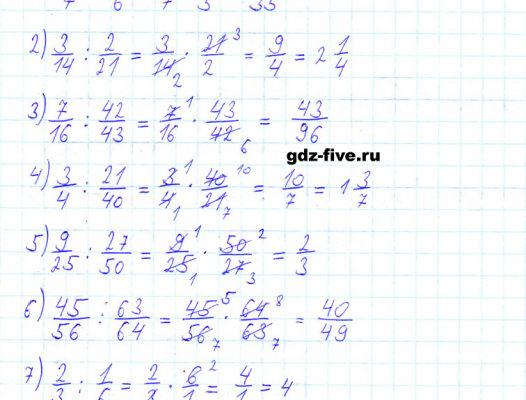 2) 3/14 : 2/21 = 3/14 2 · 21 3/2 = 9/4 = 2 1/4
3) 7/16 : 42/43 = 7 1/16 · 43/42 6 = 43/96
gdz-five.ru
4) 3/4 : 21/40 = 3 1/4 1 · 40 10/21 7 = 10/7 = 1 3/7
5) 9/25 : 27/50 = 9 1/25 1 · 50 2/27 3 = 2/3
6) 45/56 : 63/64 = 45 5/56 7 · 64 8/63 7 = 40/49
7) 2/3 : 1/6 = 2/3 · 6 2/1 = 4/1 = 4